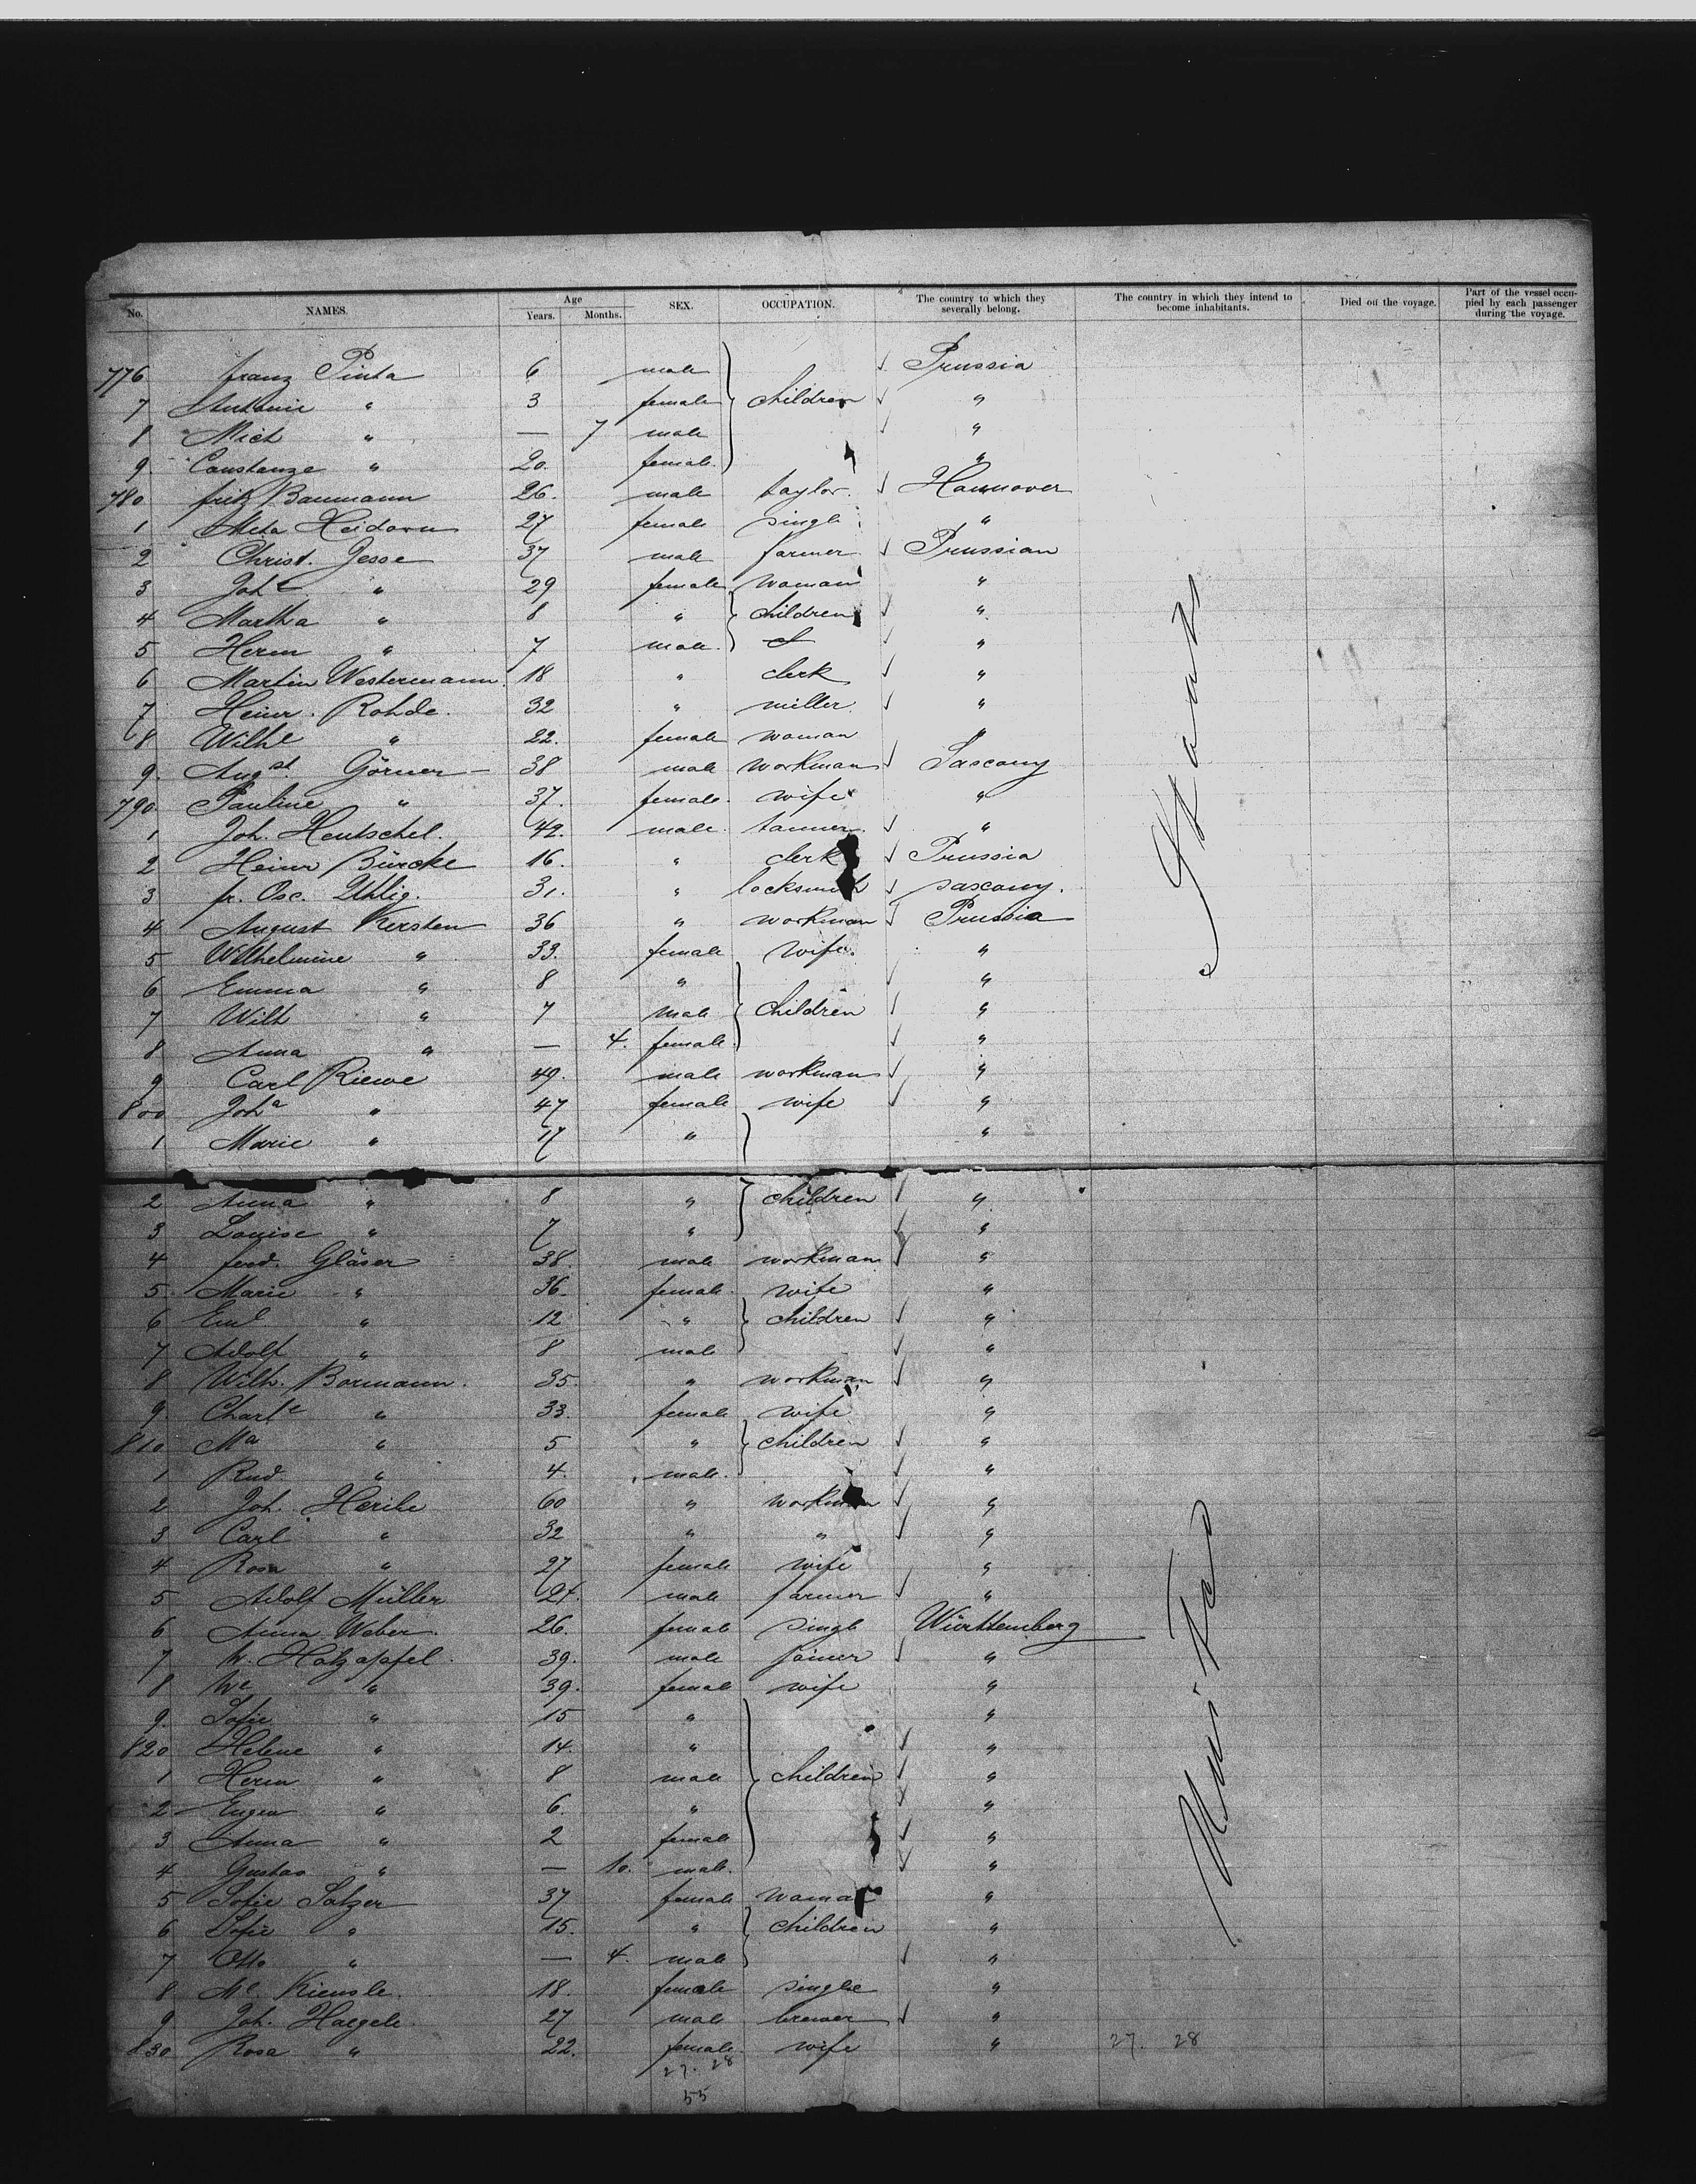 No. NAMES. Age Years. Months. SEX. OCCUPATION. The country to which they severally belong. The country in which they intend to become inhabitants. Died on the voyage. Part of the vessel occupied by each passenger during the voyage.
776 franz Pinta 6 male Prussia
7 Antonie " 3 female children "
8 Mich " — 7 male "
9 Constanze " 20. female. "
780 fritz Baumann 26. male taylor. Hannover
1 Meta Heidorn 27 female single "
2 Christ. Jesse 37 male farmer Prussian
3 Johe " 29 female woman "
4 Martha " 8 " children "
5 Herm " 7 male. "
6 Martin Westermann 18 " clerk "
7 Heinr. Rohde. 32 " miller. "
8 Wilhe " 22. female woman "
9. Augst. Görner 38 male workman Saxony
790. Pauline " 37. female. wife "
1 Joh. Hentschel. 42. male. tanner. "
2 Heinr Bürcke 16. " clerk Prussia
3 fr. Osc. Uhlig. 31. " locksmith saxony.
4 August Kersten 36 " workman Prussia
5 Wilhelmine " 33. female wife. "
6 Emma " 8 " "
7 Wilh " 7 male children "
8 Anna " — 4. female. "
9 Carl Riewe 49. male workman "
800 Joha " 47 female wife "
1 Marie " 17 " "
2 Anna " 8 " children "
3 Louise " 7 " "
4 ferd. Gläser 38. male workman "
5. Marie " 36. female. wife "
6 Eml " 12 " children "
7 Adolf " 8 male "
8 Wilh. Bormann. 35. " workman "
9 Charle " 33. female wife "
810 Ma " 5 " children "
1 Rud. " 4. male. "
2 Joh. 60 " workman "
3 Carl " 32 " " "
4 Rosa " 27 female wife "
5 Adolf Müller 21. male farmer "
6 Anna Weber. 26. female single Württemberg
7 W. Holzapfel. 39. male joiner "
8 We " 39. female wife "
9. Sofie " 15 " "
820 Helene " 14. " "
1 Herm " 8 male children "
2 Eugen " 6. " "
3 Anna " 2 female "
4 Gustav " — 10. male. "
5 Sofie Salzer 37 female woman "
6 Sofie " 15. " children "
7 Otto " — 4. male "
8. Me. Kiensle. 18. female single "
9 Joh. Haegele. 27 male brewer "
830 Rosa " 22. female wife " 27. 28
27. 28
55
United States